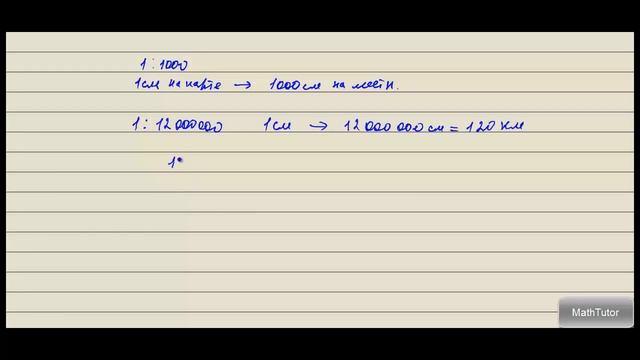 1 : 1000
1см на карте → 1000 см на местн.
1 : 12 000 000 1 см → 12 000 000 см = 120 км
1
MathTutor